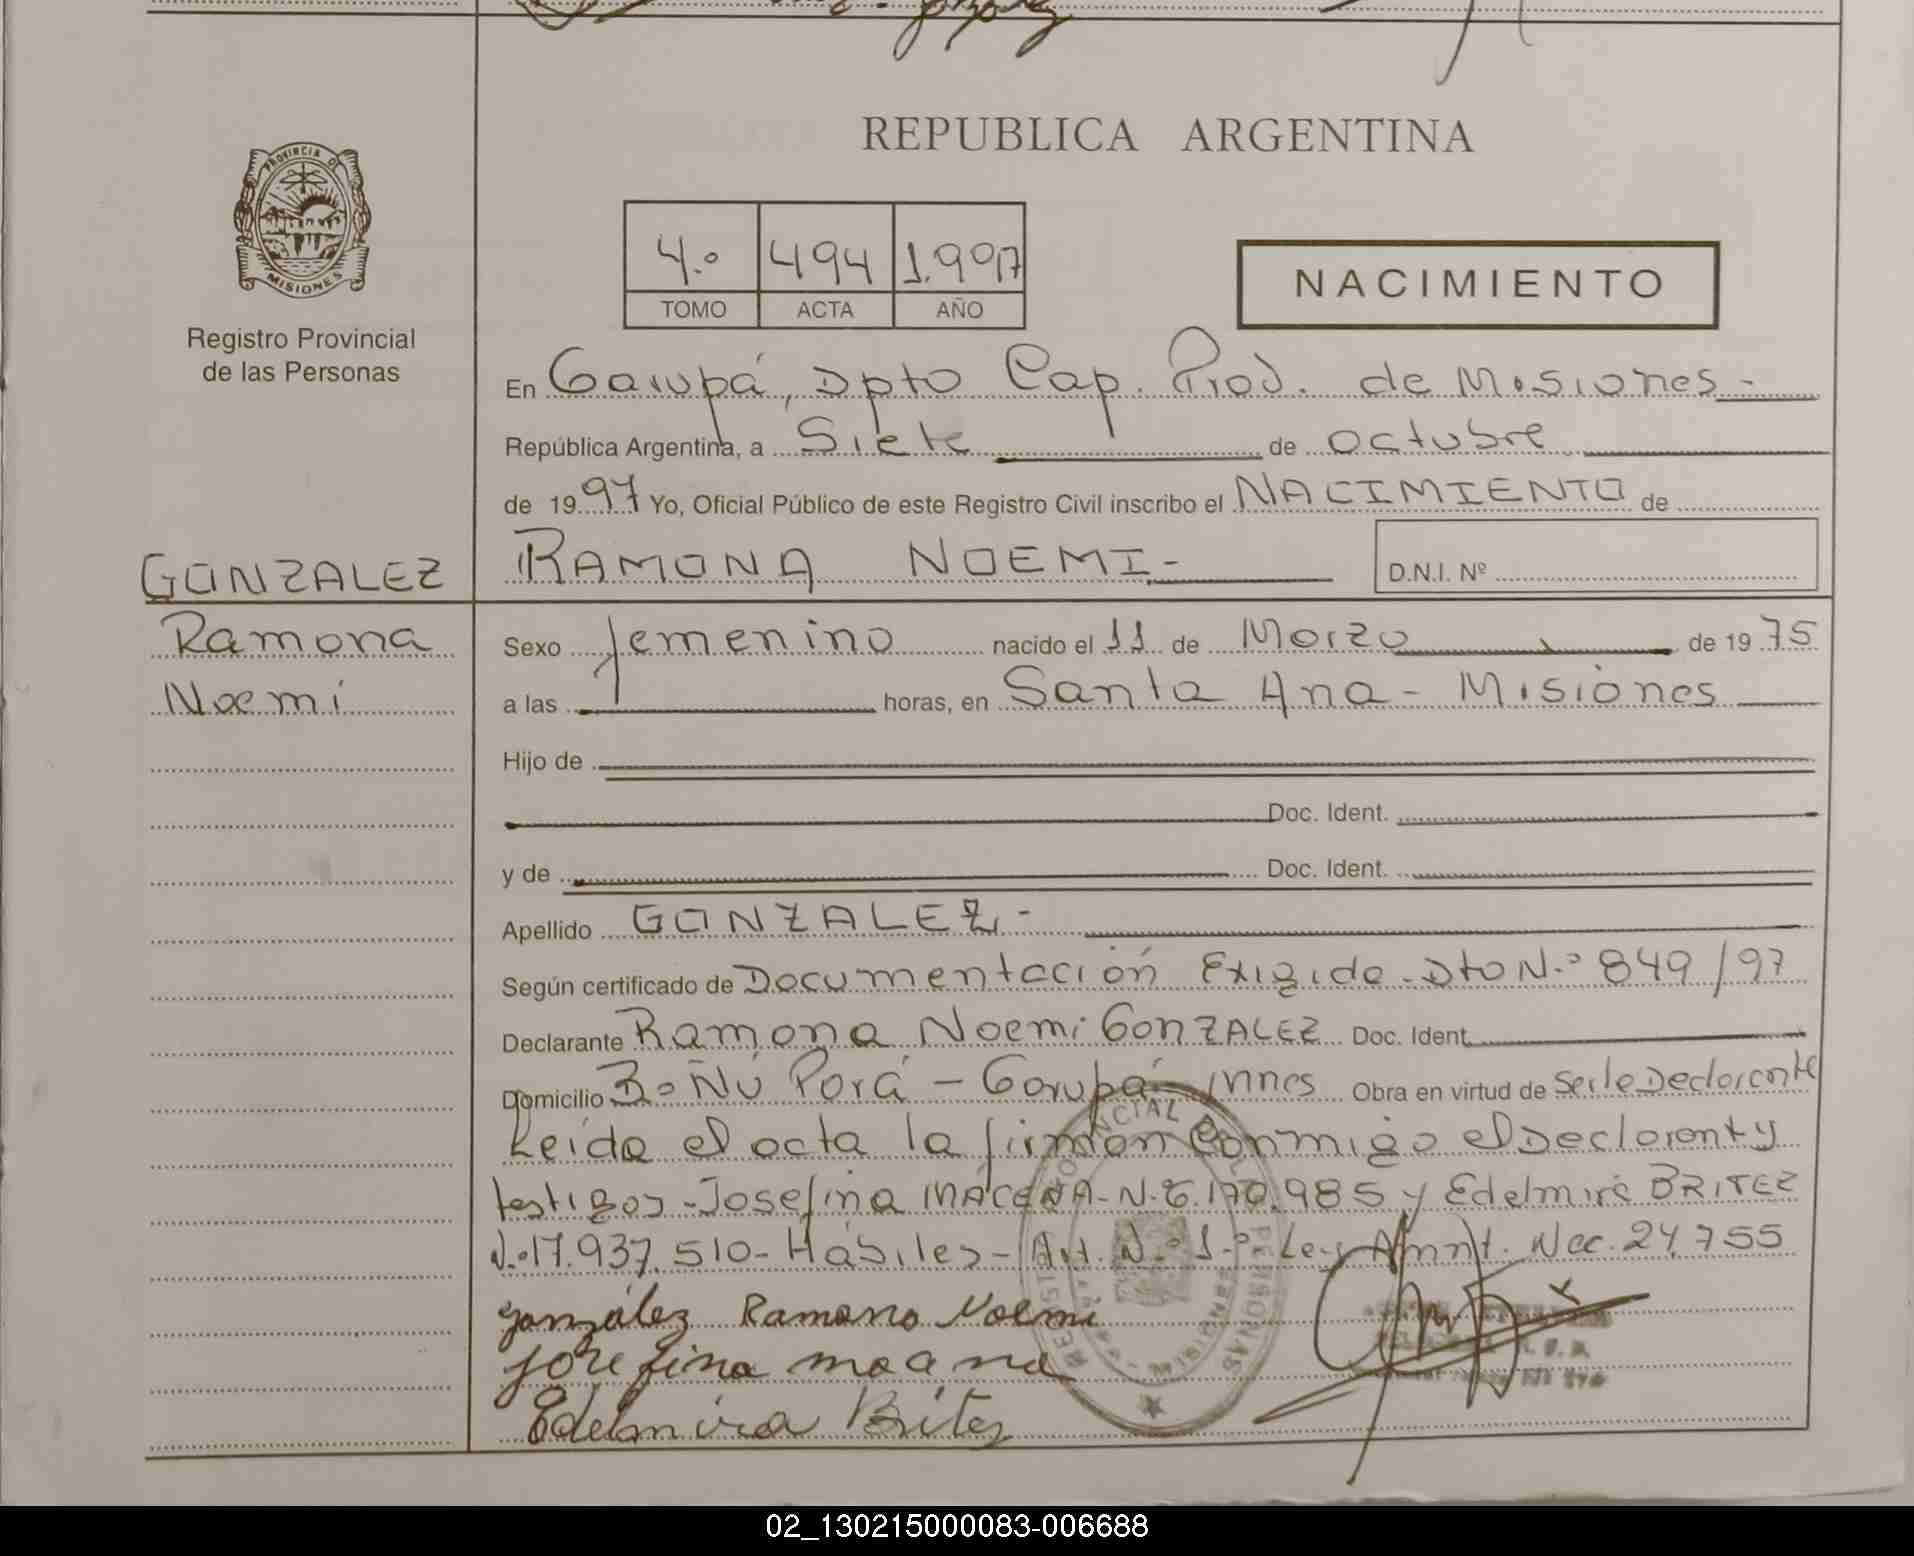 REPUBLICA ARGENTINA
PROVINCIA D
MISIONES
Registro Provincial
de las Personas
4.º 494 1.997
TOMO ACTA AÑO
NACIMIENTO
En Garupá, Dpto Cap. Prov. de Misiones.-
República Argentina, a Siete de octubre
de 1997 Yo, Oficial Público de este Registro Civil inscribo el NACIMIENTO de
GONZALEZ
RAMONA NOEMI-
D.N.I. Nº
Ramona
Noemi
Sexo femenino nacido el 11 de Marzo de 1975
a las horas, en Santa Ana - Misiones
Hijo de
Doc. Ident.
y de Doc. Ident.
Apellido GONZALEZ.-
Según certificado de Documentación Exigida - Dto N.º 849/97
Declarante Ramona Noemi GONZALEZ Doc. Ident.
Domicilio B.º Ñú Porá - Garupá - Mnes Obra en virtud de Ser la Declarante
Leída el acta la firman conmigo el Declarant y
testigos - Josefina - N. 6.170.985 y Edelmira BRITEZ
N.º 17.937.510 - Hábiles - Art. N.º 1.º Ley Amnt. Nac. 24755
González Ramona Noemi
Josefina
Edelmira Britez
PERSONAS
02_130215000083-006688